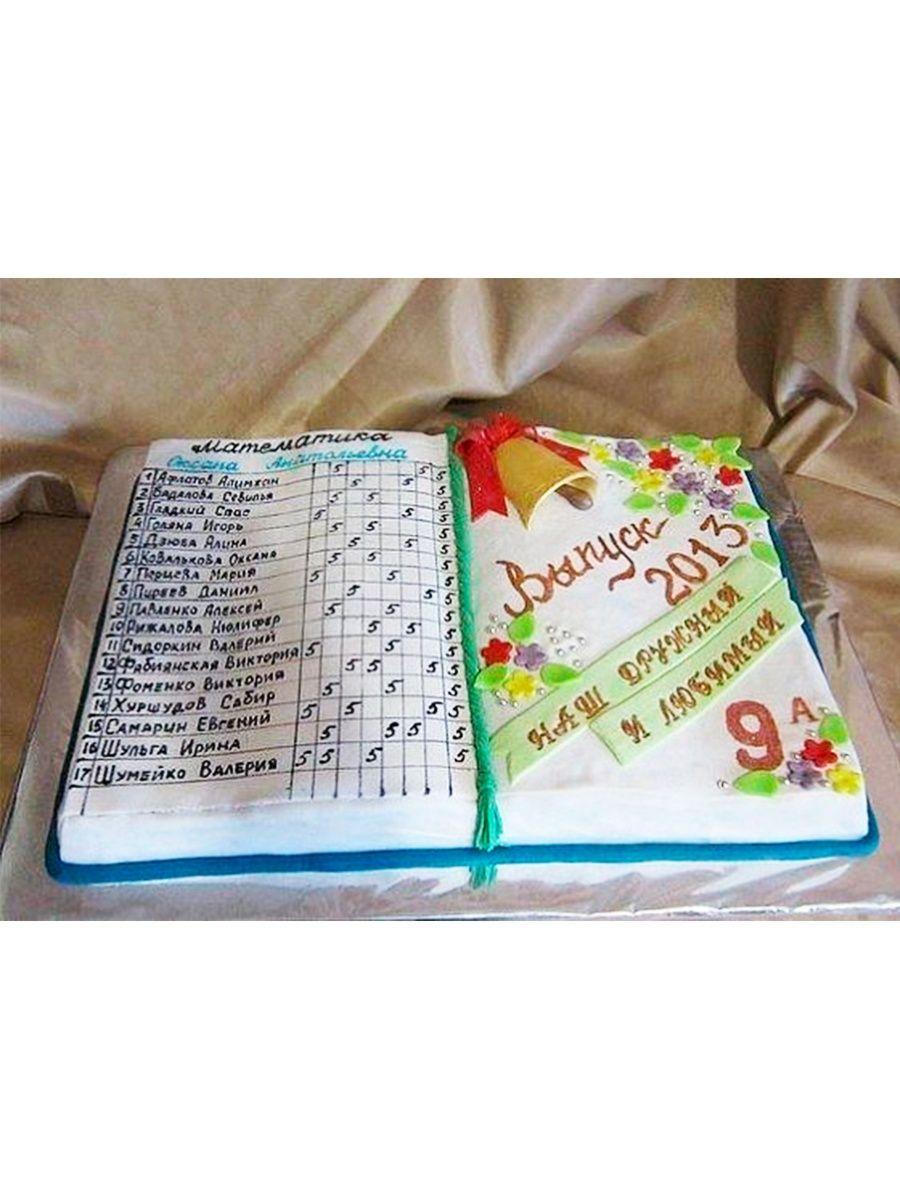 Математика
Оксана Анатольевна
1 Афлатов Алимхан 5 5 5 5
2 Бадалова Севилья 5 5 5
3 Гладкий Спас 5 5 5
4 Голяна Игорь 5 5 5
5 Дзюва Алина 5 5 5
6 Ковалькова Оксана 5 5 5
7 Перцева Мария 5 5 5
8 Пиреев Даниил 5 5 5
9 Павленко Алексей 5 5 5
10 Рижалова Нюлифер 5 5 5
11 Сидоркин Валерий 5 5 5
12 Фабиянская Виктория 5 5 5
13 Фоменко Виктория 5 5 5
14 Хуршудов Сабир 5 5 5
15 Самарин Евгений 5 5 5
16 Шульга Ирина 5 5 5 5
17 Шумейко Валерия 5 5 5 5
Выпуск
2013
НАШ ДРУЖНЫЙ
И ЛЮБИМЫЙ
9 А